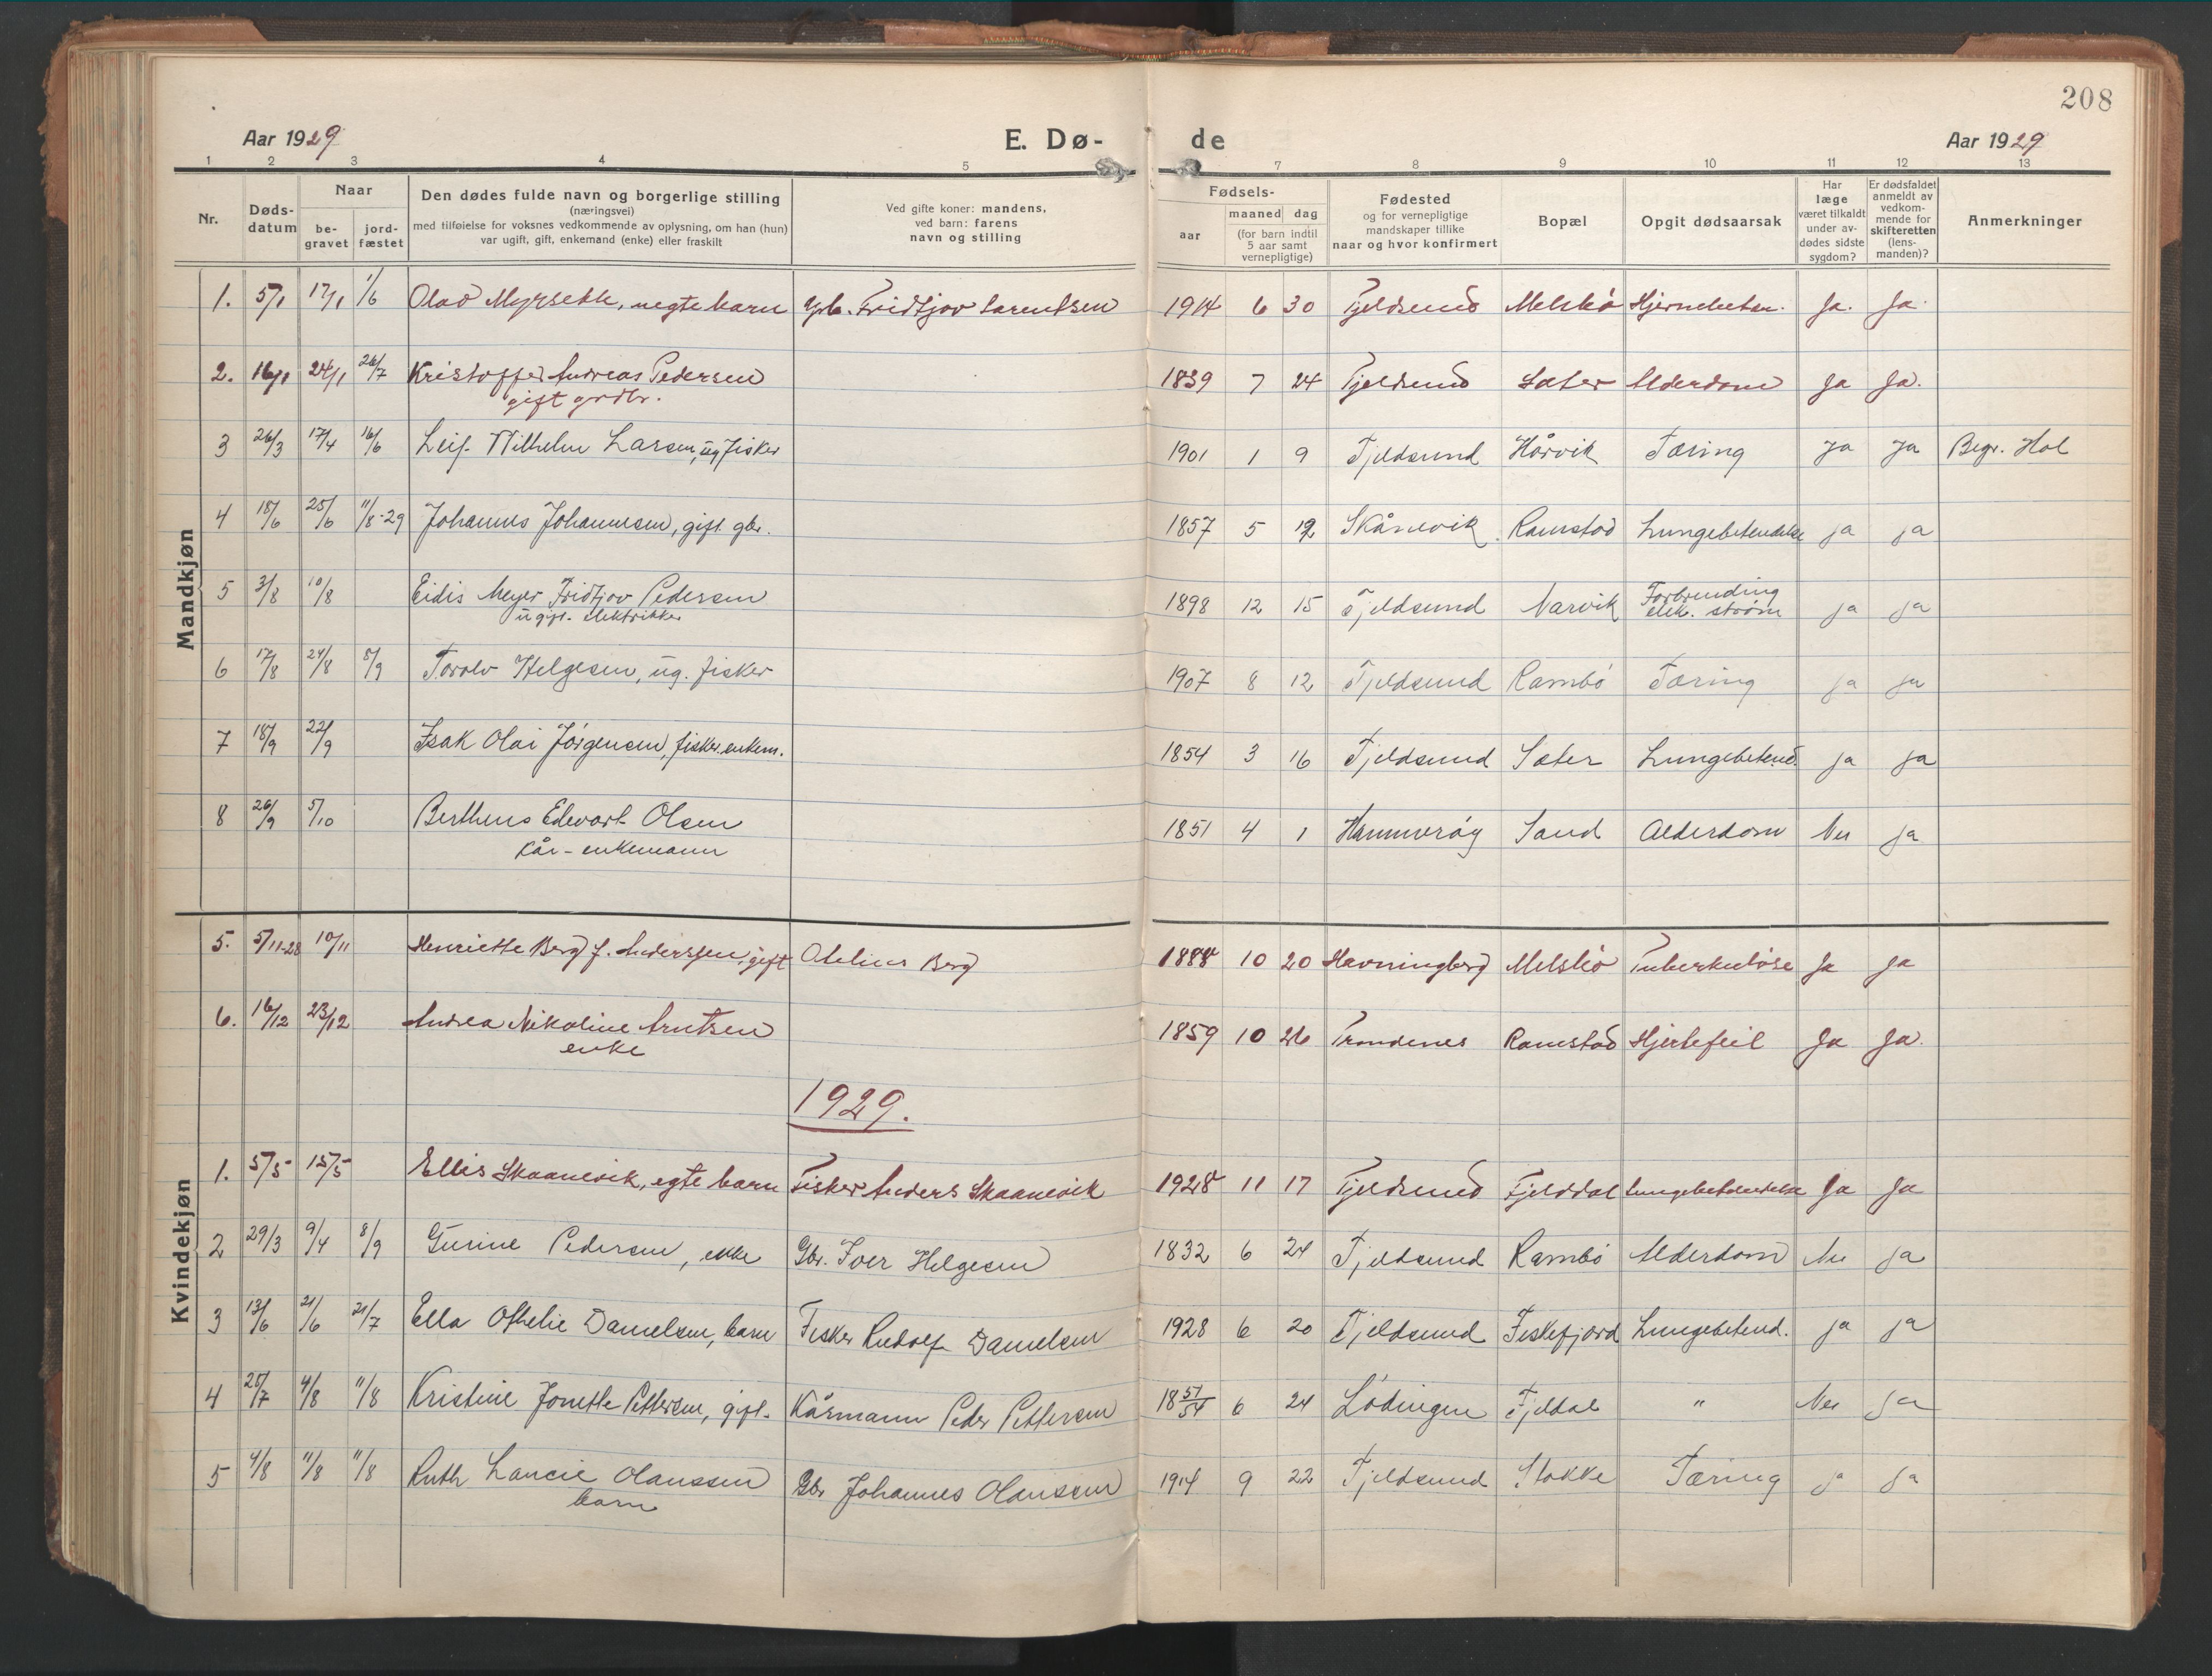 208
Aar 1929 E. Dø- de Aar 1929
1 2 3 4 5 7 8 9 10 11 12 13
Nr. Døds-datum Naar be-gravet jord-fæstet Den dødes fulde navn og borgerlige stilling (næringsvei) med tilføielse for voksnes vedkommende av oplysning, om han (hun) var ugift, gift, enkemand (enke) eller fraskilt Ved gifte koner: mandens, ved barn: farens navn og stilling Fødsels- aar maaned dag (for barn indtil 5 aar samt vernepligtige) Fødested og for vernepligtige mandskaper tillike naar og hvor konfirmert Bopæl Opgit dødsaarsak Har læge været tilkaldt under av-dødes sidste sygdom? Er dødsfaldet anmeldt av vedkom-mende for skifteretten (lens-manden)? Anmerkninger
Mandkjøn
1. 5/1 17/1 1/6 Olav Myrseth, uegte barn Fridtjov Larentsen 1914 6 30 Fjeldsund Melsbö Hjernebetæn. Ja. Ja.
2. 16/1 24/1 26/7 Kristoffer Andreas Pedersen 1839 7 24 Fjeldsund Sæter Alderdom Ja Ja.
gift grdbr.
3 26/3 17/4 16/6 Leif Wilhelm Larsen, ug fisker 1901 1 9 Tjeldsund Hårvik Tæring Ja Ja Begr. Hol
4 18/6 25/6 11/8-29 Johannes Johannesen, gift. gbr. 1857 5 12 Skånevik Ramstad Lungebetendelse ja ja
5 3/8 10/8 Eidis Meyer Fridtjov Pedersen 1898 12 15 Tjeldsund Narvik Forbrending elek. strøm ja ja
ugift. elektrikker
6 17/8 24/8 8/9 Torolv Helgesen, ug. fisker 1907 8 12 Tjeldsund Rambö Tæring ja ja
7 18/9 22/9 Isak Olai Jörgensen, fisker. enkem. 1854 3 16 Tjeldsund Sæter Lungebetend. ja ja
8 26/9 5/10 Berthens Edevart Olsen 1851 4 1 Hammeröy Sand Alderdom Nei ja
Kår-enkemann
Kvindekjøn
5. 5/11-28 10/11 Henriette Berg f. Anderssen, gift Otelius Berg 1888 10 20 Havningberg Melsbö Tuberkulose Ja Ja
6. 16/12 23/12 Andrea Nikoline Arntsen 1859 10 26 Trondenes Ramstad Hjertefeil Ja Ja.
enke
1929.
1. 5/5 15/5 Ellis Skaanevik, egte barn Fisker Anders Skaanevik 1928 11 17 Fjeldsund Fjelddal Lungebetendelse Ja Ja
2 29/3 9/4 8/9 Gurine Pedersen, enke Gbr. Iver Helgesen 1832 6 24 Tjeldsund Rambö Alderdom Nei ja
3 13/6 21/6 21/7 Ella Othelie Danielsen, barn Fisker Rudolf Danielsen 1928 6 20 Tjeldsund Fiskefjord Lungebetend. ja ja
4 25/7 4/8 11/8 Kristine Jonette Pettersen, gift. Kårmann Peder Pettersen 18 51/54 6 24 Lödingen Fjeldal " Nei ja
5 4/8 11/8 11/8 Ruth Lancie Olaussen Gbr Johannes Olaussen 1914 9 22 Tjeldsund Stokke Tæring ja ja
barn